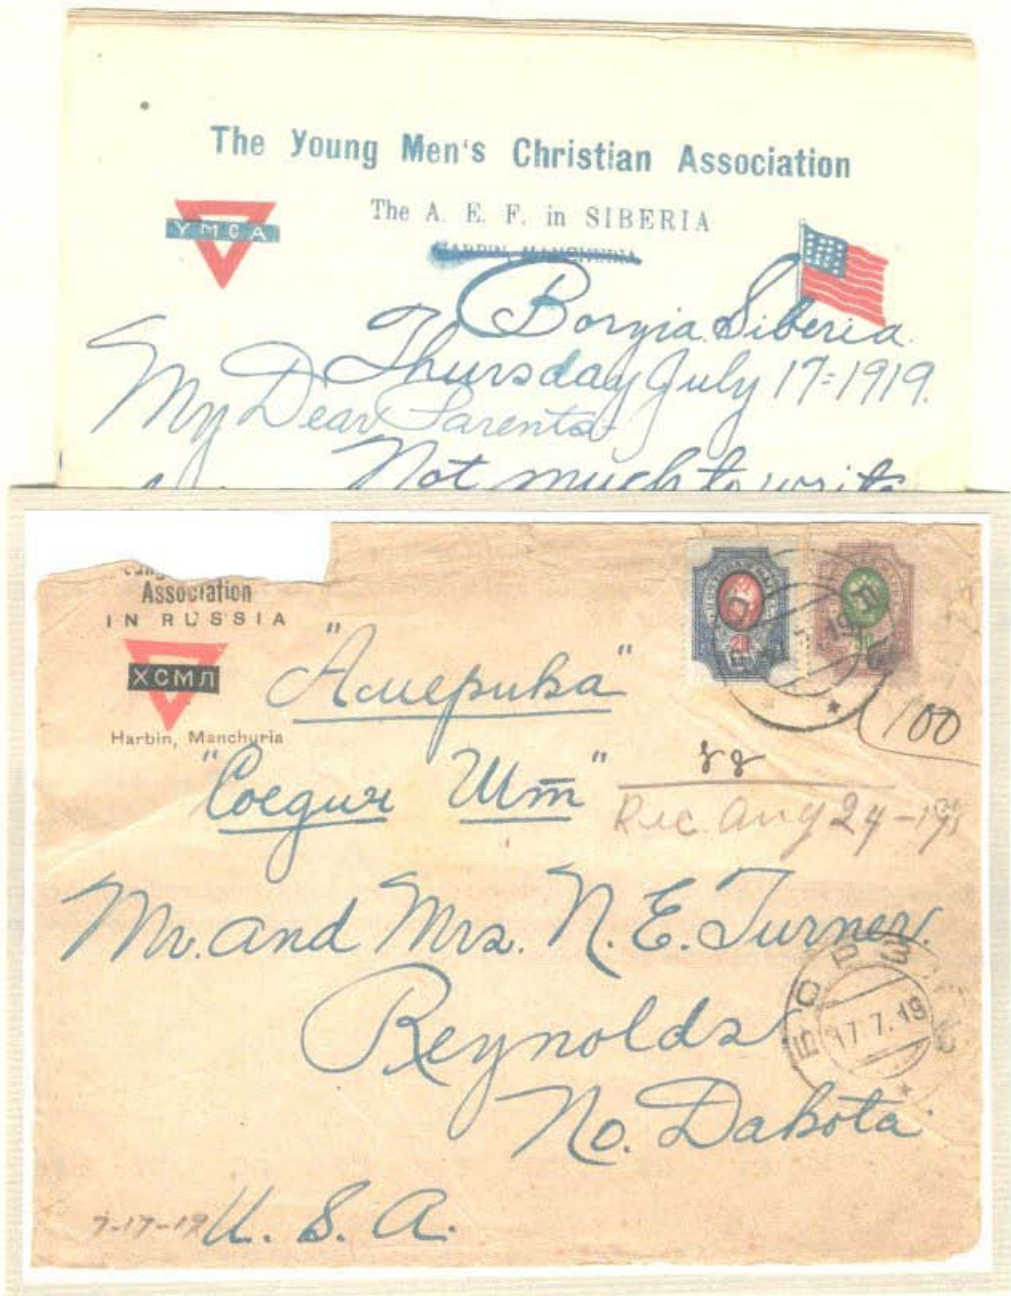 The Young Men's Christian Association
The A. E. F. in SIBERIA
YMCA
HARBIN, MANCHURIA
Borzia Siberia.
Thursday July 17-1919.
My Dear Parents-
Not much to write
Association
IN RUSSIA
ХСМЛ
Harbin, Manchuria
"Америка"
"Соедин Шт"
100
Rec. Aug 24-19
Mr. and Mrs. N. E. Turner.
БОРЗ
17.7.19
Reynolds
No. Dakota
7-17-19 U. S. A.